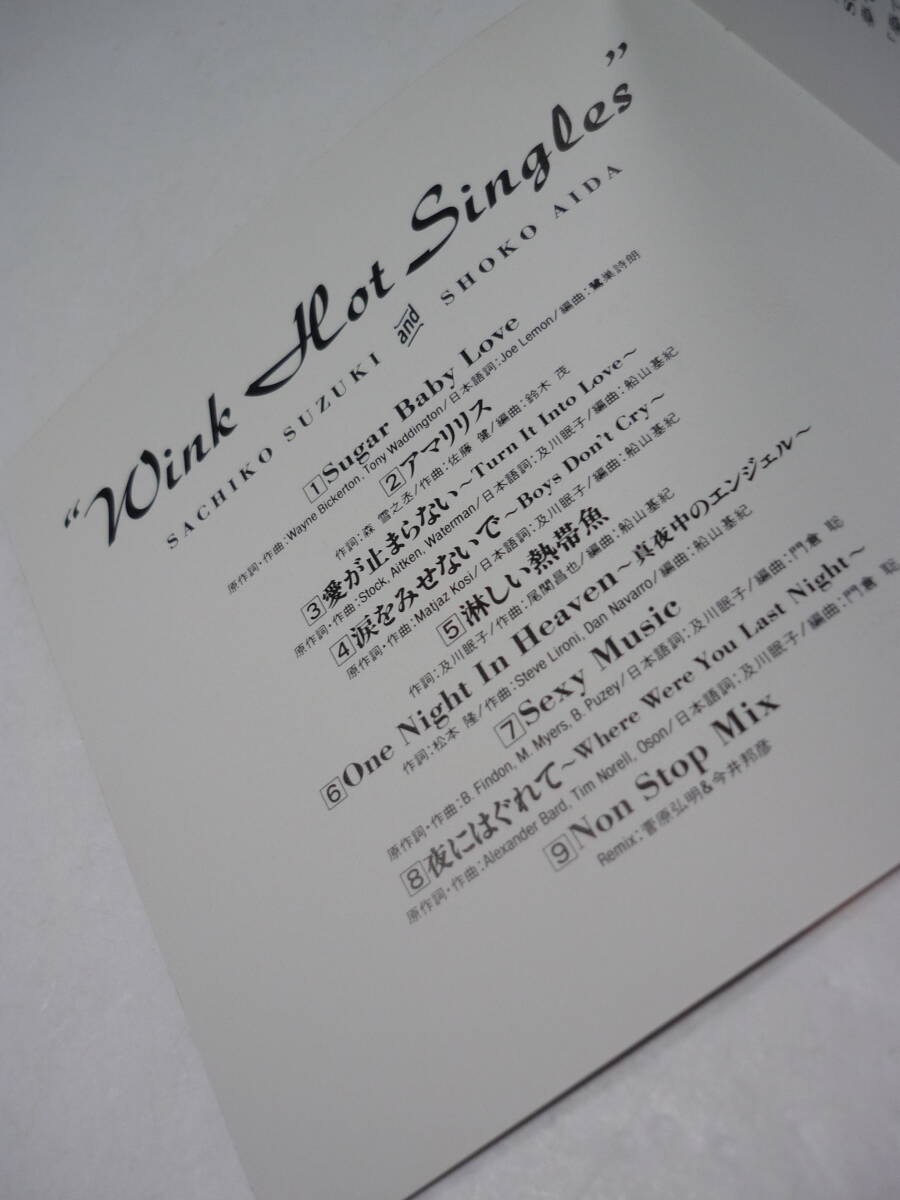 “Wink Hot Singles”
SACHIKO SUZUKI and SHOKO AIDA
1 Sugar Baby Love
原作詞・作曲:Wayne Bickerton, Tony Waddington/日本語詞:Joe Lemon/編曲:鷺巣詩朗
2 アマリリス
作詞:森 雪之丞/作曲:佐藤 健/編曲:鈴木 茂
3 愛が止まらない〜Turn It Into Love〜
原作詞・作曲:Stock, Aitken, Waterman/日本語詞:及川眠子/編曲:船山基紀
4 涙をみせないで〜Boys Don't Cry〜
原作詞・作曲:Matjaz Kosi/日本語詞:及川眠子/編曲:船山基紀
5 淋しい熱帯魚
作詞:及川眠子/作曲:尾関昌也/編曲:船山基紀
6 One Night In Heaven〜真夜中のエンジェル〜
作詞:松本 隆/作曲:Steve Lironi, Dan Navarro/編曲:船山基紀
7 Sexy Music
原作詞・作曲:B. Findon, M. Myers, B. Puzey/日本語詞:及川眠子/編曲:門倉 聡
8 夜にはぐれて〜Where Were You Last Night〜
原作詞・作曲:Alexander Bard, Tim Norell, Oson/日本語詞:及川眠子/編曲:門倉 聡
9 Non Stop Mix
Remix:菅原弘明&今井邦彦